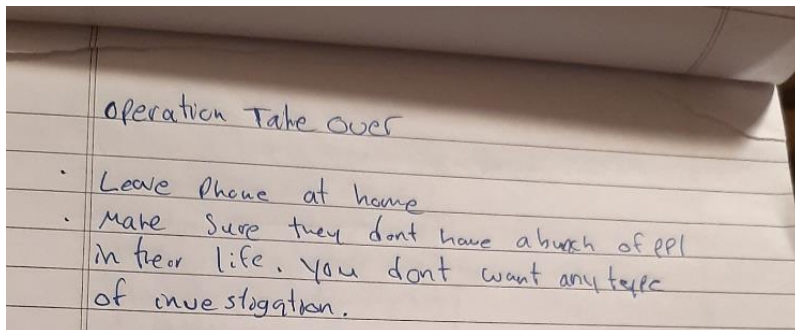 Operation Take over
· Leave Phone at home
· Make Sure they dont have a bunch of ppl
in their life. You dont want any type
of investigation.